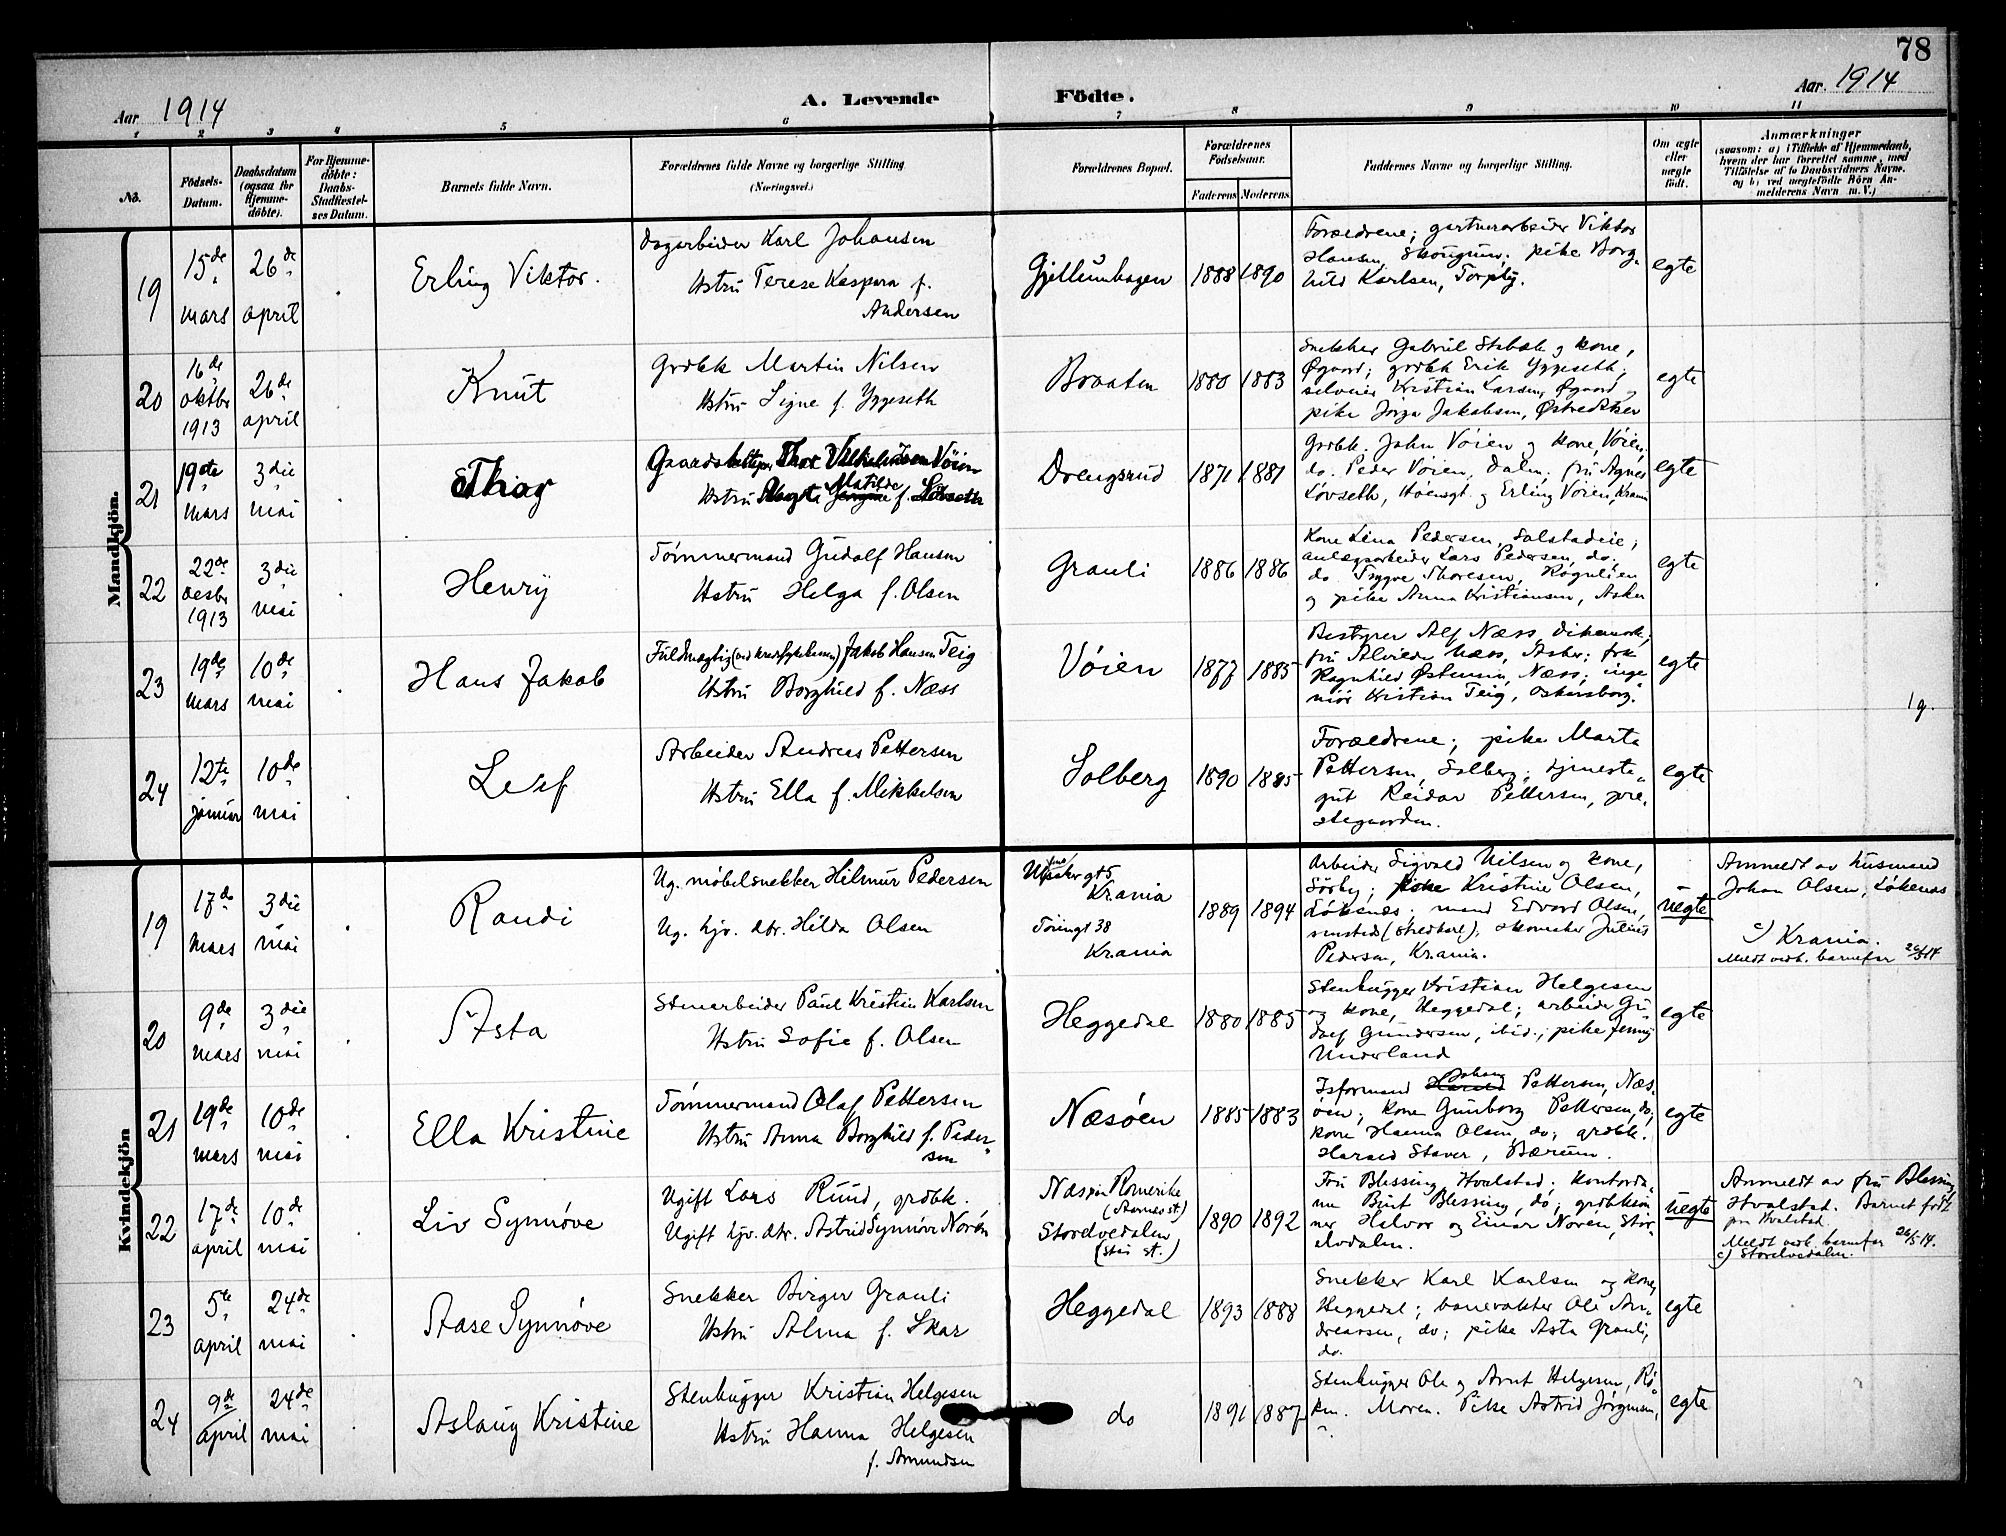 78
Aar 1914
A. Levende
Födte.
Aar. 1914
1 2 3 4 5 6 7 8 9 10 11
No.
Födsels-
Datum.
Daabsdatum
(ogsaa for
Hjemme-
döbte).
For Hjemme-
döbte:
Daabs-
Stadfæstel-
ses Datum.
Barnets fulde Navn.
Forældrenes fulde Navne og borgerlige Stilling
(Næringsvei.)
Forældrenes Bopæl.
Forældrenes
Födselsaar.
Faderens
Moderens
Faddernes Navne og borgerlige Stilling.
Om ægte
eller
uægte
født.
Anmærkninger
(saasom: a) i Tilfælde af Hjemmedaab,
hvem der har forrettet samme, med
Tilföielse af to Daabsvidners Navne.
og b) ved uægtefödte Börn An-
melderens Navn m. V.)
Mandkjön.
19
15de mars
26de april
Erling Viktor.
Dagarbeider Karl Johansen
Hstru Terese Kaspara f.
Andersen
Gjellumhagen
1888
1890
Forældrene; gartnerarbeider Viktor
Hansen, Skougum; pike Borg-
hild Karlsen, Torplig.
egte
20
16de oktbr 1913
26de april
Knut
Grdbk Martin Nilsen
Hstru Signe f. Yggeseth
Braaten
1880
1883
Snekker Gabriel Stabæk og kone,
Øgaard; grdbk Erik Yggeseth;
Kristian Larsen, Øgaard og
pike Jakobsen,
egte
21
19de mars
3die mai
Thor
Gaardsbestyrer Thor Vilhelm Vøien
Hstru Matilde f. Løvseth
Drengsrud
1871
1881
Grdbk. John Vøien og kone, Vøien;
do. Peder Vøien, Dalen; fru Agnes
Løvseth, og Erling Vøien,
egte
22
22de desbr 1913
3die mai
Henry
Tømmermand Gudolf Hansen
Hstru Helga f. Olsen
Grauli
1886
1886
Kone Lina Pedersen, Solstadeie;
anlægsarbeider Lars Pedersen, do,
do Trygve Thoresen,
og pike Anna Kristiansen, Asker
egte
23
19de mars
10de mai
Hans Jakob
Fuldmægtig Jakob Hansen Teig
Hstru Borghild f. Næss
Vøien
1877
1885
Bestyrer Alf Næss, Dikemark;
fru Næss, Asker; frk.
Ragnhild Østensen, Næss; inge-
niør Kristian Teig, Oskarsborg.
egte
1 g.
24
12te januar
10de mai
Leif
Arbeider Andreas Pettersen
Hstru Ella f. Mikkelsen
Solberg
1890
1885
Forældrene; pike Marta
Pettersen, Solberg; tjeneste-
gut Reidar Pettersen, pre-
stegaarden.
egte
Kvindekjön
19
17de mars
3die mai
Randi
Ug. møbelsnekker Hilmar Pedersen
Ug. hjv. dtr. Hilda Olsen
Krania
38
Krania
1889
1894
Arbeider Sigvald Nilsen og kone,
Sörby; pike Kristine Olsen,
Løkenæs; mand Edvard Olsen,
skomaker Julius
Pedersen, Krania.
uegte
Anmeldt av husmand
Johan Olsen, Løkenæs
c) Krania.
Meldt vedk. barnefar
20
9de mars
3die mai
Asta
Stenarbeider Paul Kristian Karlsen
Hstru Sofie f. Olsen
Heggedal
1880
1885
Stenhugger Kristian Helgesen
og kone, Heggedal; arbeider Gu-
dolf Gundersen, ibid.; pike Jenny
Underland
egte
21
19de mars
10de mai
Ella Kristine
Tømmermand Olaf Pettersen
Hstru Anna Borghild f. Peder-
sen
Næsøen
1885
1883
Isformand Johan Pettersen, Næs-
øen; kone Gunborg Pettersen, do;
kone Hanna Olsen, do; grdbk.
Harald Staver, Bærum.
egte
22
17de april
10de mai
Liv Synnøve
Ugift Lars Ruud, grdbk.
Ugift hjv. dtr. Astrid Synnøve Norén
Næs paa Romerike
(Aarnes st.)
Stordvedalen
1890
1892
Fru Blessing, Hvalstad; kontorda-
me Blessing, do; grdbksøn-
ner Halvor og Einar Norén, Stor-
dvedalen.
uegte
Anmeldt av fru Blessing,
Hvalstad. Barnet født
paa Hvalstad.
Meldt vedk. barnefar 26/5 14.
c) Stordvedalen.
23
5te april
24de mai
Aase Synnøve
Snekker Birger Grauli
Hstru Alma f. Skar
Heggedal
1893
1888
Snekker Karl Karlsen og kone,
Heggedal; banevokter Ole An-
dreassen, do; pike Asta Grauli,
do.
egte
24
9de april
24de mai
Aslaug Kristine
Stenhugger Kristian Helgesen
Hstru Hanna Helgesen
f. Amundsen
do
1891
1887
Stenhugger Ole og Arnt Helgesen, Rø-
ken. Moren. Pike Astrid Jørgensen,
egte